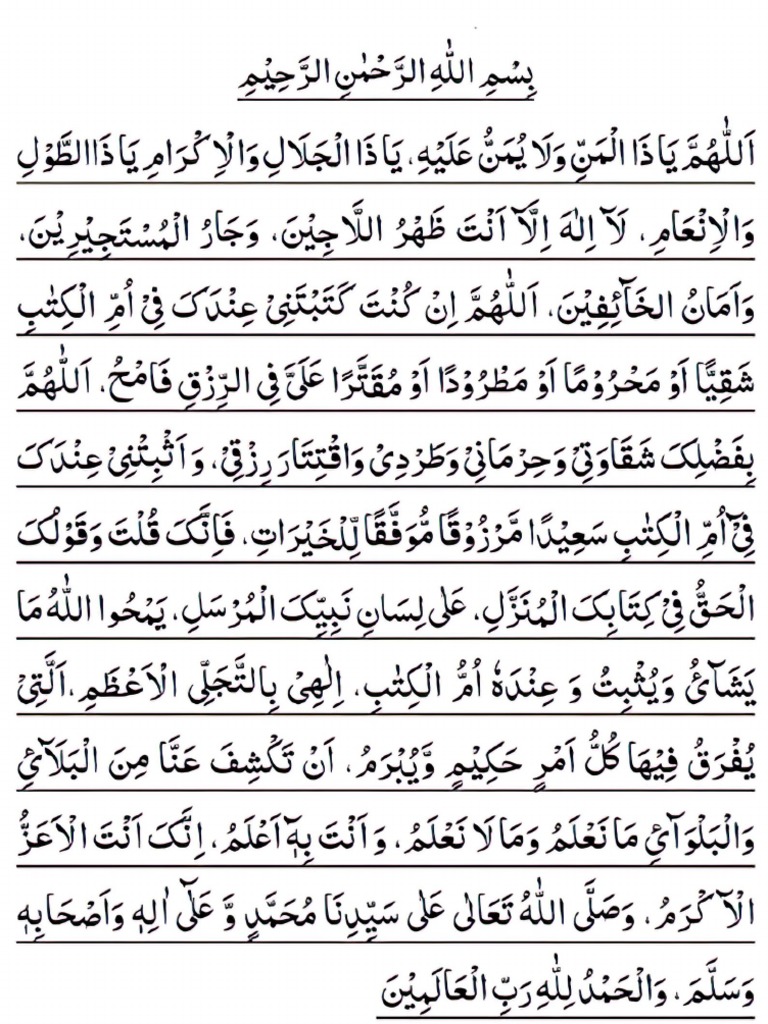 بِسْمِ اللّٰهِ الرَّحْمٰنِ الرَّحِيْمِ
اَللّٰهُمَّ يَا ذَا الْمَنِّ وَلَا يُمَنُّ عَلَيْهِ، يَا ذَا الْجَلَالِ وَالْاِكْرَامِ يَا ذَاالطَّوْلِ
وَالْاِنْعَامِ، لَآ اِلٰهَ اِلَّآ اَنْتَ ظَهْرُ اللَّاجِيْنَ، وَجَارُ الْمُسْتَجِيْرِيْنَ،
وَاَمَانُ الخَآئِفِيْنَ، اَللّٰهُمَّ اِنْ كُنْتَ كَتَبْتَنِيْ عِنْدَكَ فِيْ اُمِّ الْكِتٰبِ
شَقِيًّا اَوْ مَحْرُوْمًا اَوْ مَطْرُوْدًا اَوْ مُقَتَّرًا عَلَيَّ فِي الرِّزْقِ فَامْحُ، اَللّٰهُمَّ
بِفَضْلِكَ شَقَاوَتِيْ وَحِرْمَانِيْ وَطَرْدِيْ وَاقْتِتَارَ رِزْقِيْ، وَاَثْبِتْنِيْ عِنْدَكَ
فِيْٓ اُمِّ الْكِتٰبِ سَعِيْدًا مَّرْزُوْقًا مُّوَفَّقًا لِّلْخَيْرَاتِ، فَاِنَّكَ قُلْتَ وَقَوْلُكَ
الْحَقُّ فِيْ كِتَابِكَ الْمُنَزَّلِ، عَلٰى لِسَانِ نَبِيِّكَ الْمُرْسَلِ، يَمْحُوا اللّٰهُ مَا
يَشَآئُ وَيُثْبِتُ وَ عِنْدَهٗ اُمُّ الْكِتٰبِ، اِلٰهِيْ بِالتَّجَلِّي الْاَعْظَمِ، اَلَّتِيْ
يُفْرَقُ فِيْهَا كُلُّ اَمْرٍ حَكِيْمٍ وَّيُبْرَمُ، اَنْ تَكْشِفَ عَنَّا مِنَ الْبَلَآئِ
وَالْبَلْوَآئِ مَا نَعْلَمُ وَمَا لَا نَعْلَمُ، وَاَنْتَ بِهٖٓ اَعْلَمُ، اِنَّكَ اَنْتَ الْاَعَزُّ
الْاَكْرَمُ، وَصَلَّى اللّٰهُ تَعَالٰى عَلٰى سَيِّدِنَا مُحَمَّدٍ وَّ عَلٰٓى اٰلِهٖ وَاَصْحَابِهٖ
وَسَلَّمَ، وَالْحَمْدُ لِلّٰهِ رَبِّ الْعَالَمِيْنَ